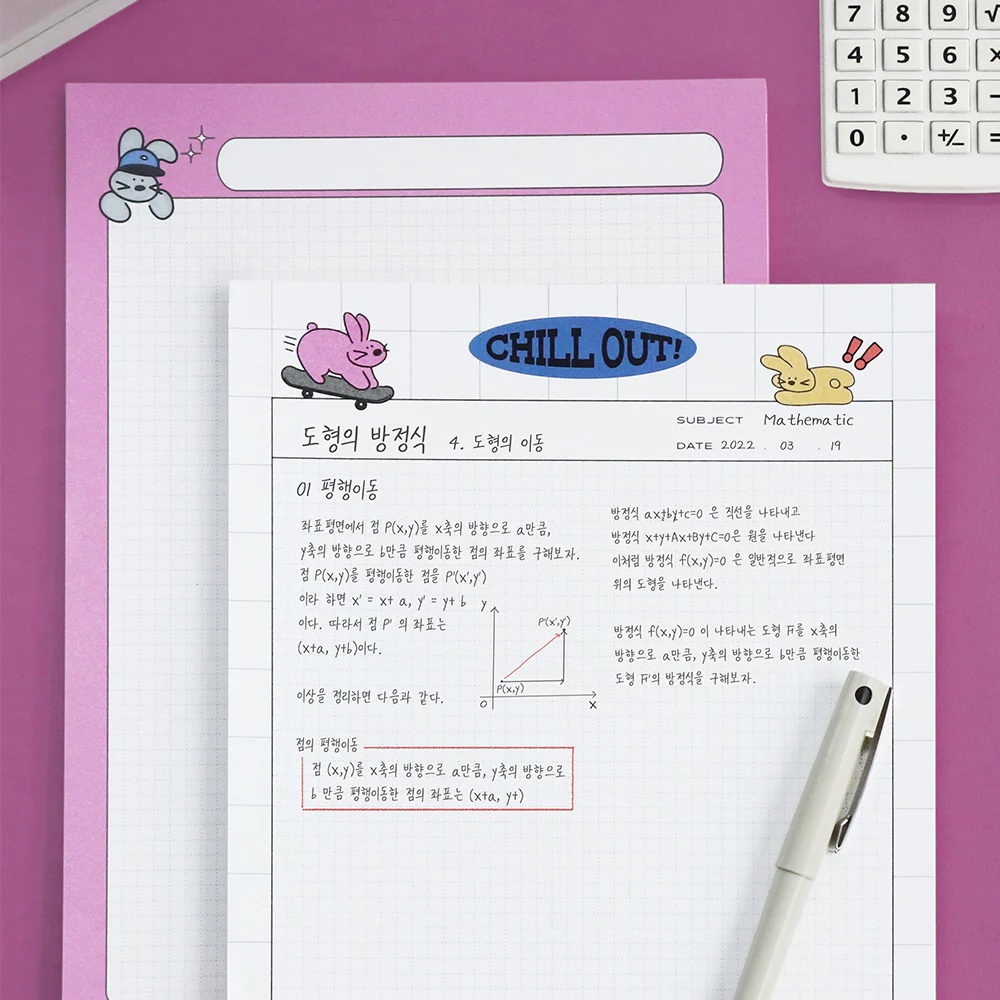 7 8 9 √
4 5 6 ×
1 2 3 −
0 · +/− =
CHILL OUT!
SUBJECT Mathematic
도형의 방정식 4. 도형의 이동
DATE 2022 . 03 . 19
01 평행이동
좌표평면에서 점 P(x,y)를 x축의 방향으로 a만큼,
y축의 방향으로 b만큼 평행이동한 점의 좌표를 구해보자.
점 P(x,y)를 평행이동한 점을 P'(x',y')
이라 하면 x' = x+ a, y' = y+ b
이다. 따라서 점 P' 의 좌표는
(x+a, y+b)이다.
이상을 정리하면 다음과 같다.
y
P'(x',y')
P(x,y)
O
x
점의 평행이동
점 (x,y)를 x축의 방향으로 a만큼, y축의 방향으로
b 만큼 평행이동한 점의 좌표는 (x+a, y+)
방정식 ax+by+c=0 은 직선을 나타내고
방정식 x+y+Ax+By+C=0은 원을 나타낸다
이처럼 방정식 f(x,y)=0 은 일반적으로 좌표평면
위의 도형을 나타낸다.
방정식 f(x,y)=0 이 나타내는 도형 F를 x축의
방향으로 a만큼, y축의 방향으로 b만큼 평행이동한
도형 F'의 방정식을 구해보자.